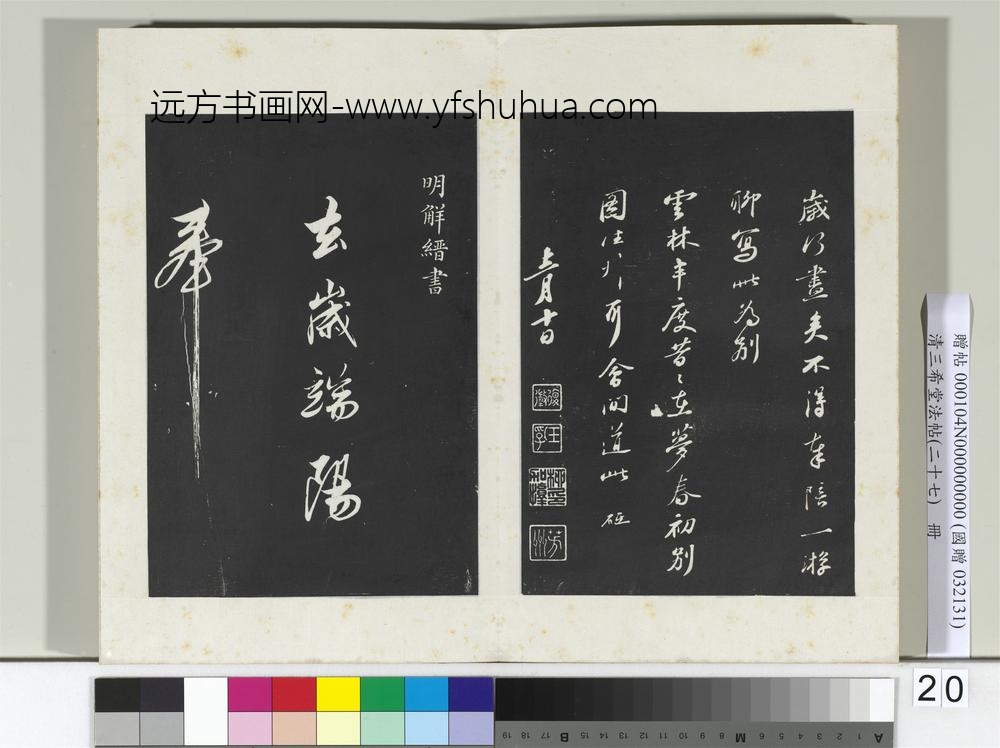 远方书画网-www.yfshuhua.com
歲行盡矣不得奉陪一游
聊寫此為別
雲林年度昔〻在夢春初別
圖
會間道此
月十日
明解縉書
去歲端陽
奉
贈帖 000104N000000000 (國贈 032131)
清三希堂法帖(二十七) 冊
20
A 1 2 3 4 5 6 M 8 9 10 11 12 13 14 15 B 17 18 19